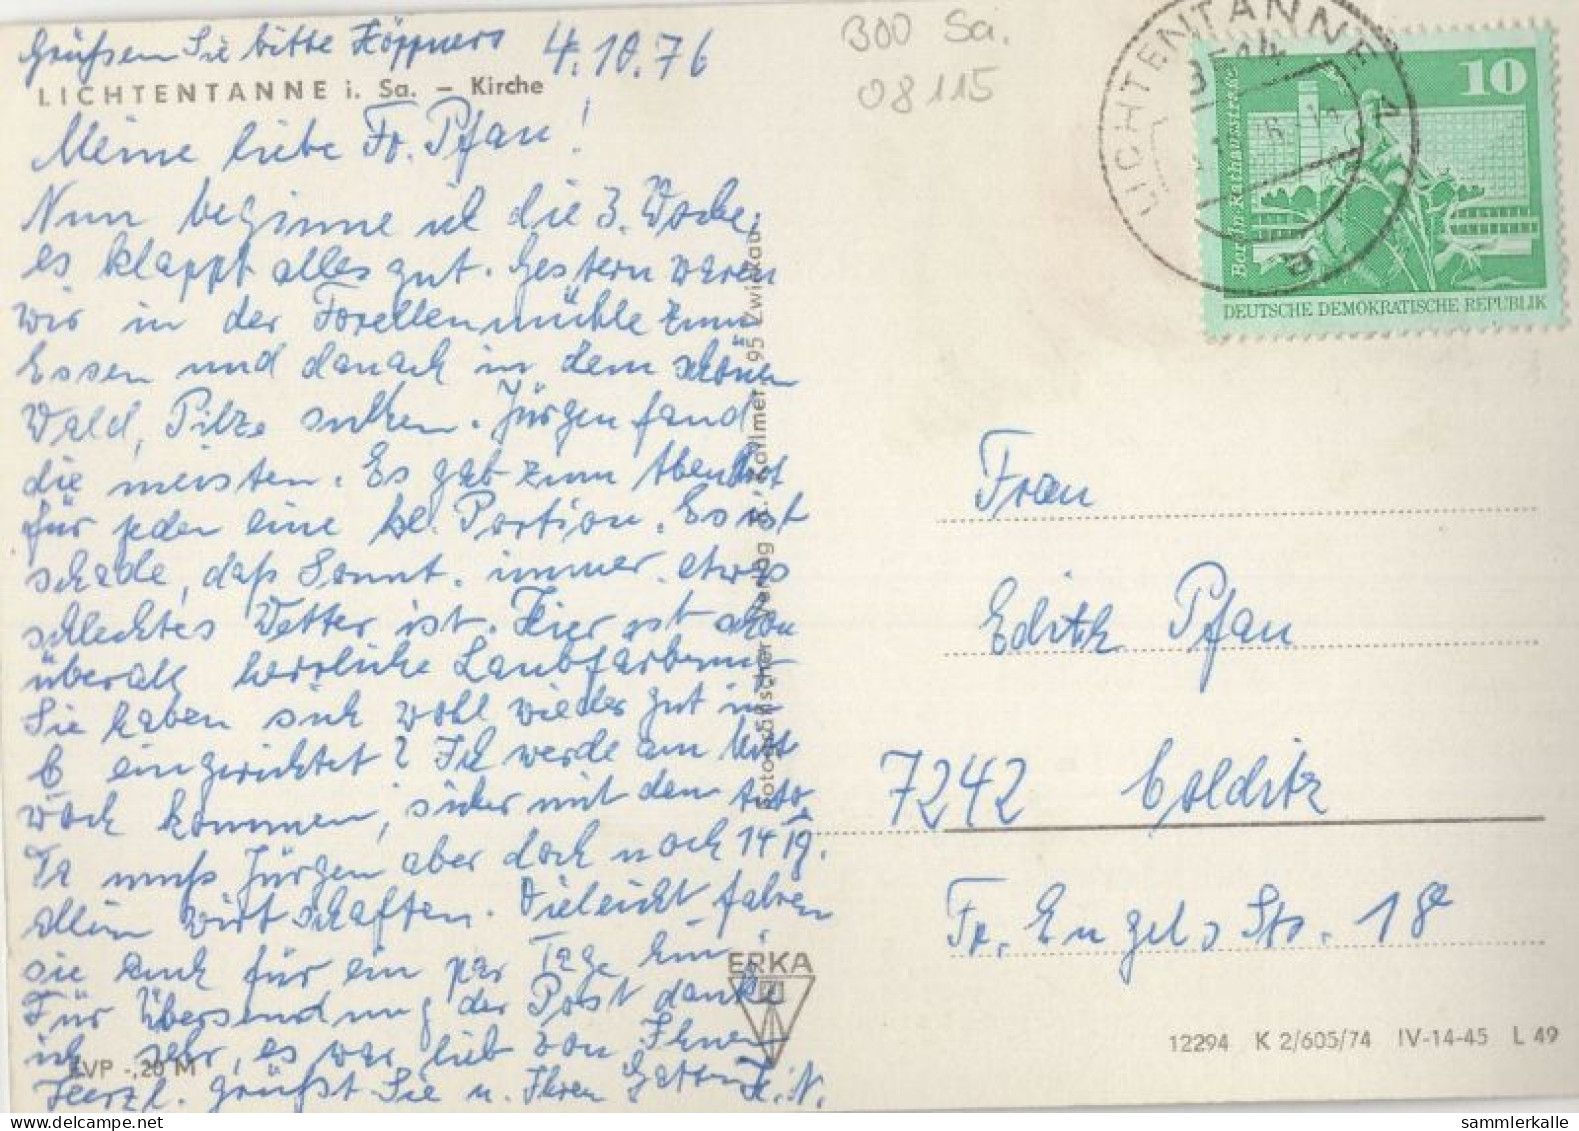 Grüßen Sie bitte Höppners 4.10.76
LICHTENTANNE i. Sa. – Kirche
Meine liebe Fr. Pfau!
Nun beginne ich die 3. Woche,
es klappt alles gut. Gestern waren
wir in der Forellenmühle zum
Essen und danach in dem schönen
Wald, Pilze suchen. Jürgen fand
die meisten. Es gab zum Abendbrot
für jeden eine kl. Portion. Es ist
schade, daß Sonnt. immer etwas
schlechtes Wetter ist. Hier ist schon
überall herrliche Laubfärbung
Sie haben sich wohl wieder gut in
C eingerichtet? Ich werde am Mitt
woch kommen, sicher mit dem Auto
Da muß Jürgen aber doch noch 14 Tg.
allein wirtschaften. Vieleicht fahren
sie auch für ein par Tage hin!
Für Übersendung der Post danke
ich sehr, es war lieb von Ihnen
Herzl. grüßt Sie u. Ihren Gatten H. N.
EVP -,20 M
Fotografischer Verlag 95 Zwickau
ERKA
300 Sa.
08115
LICHTENTANNE
a
10
Berlin-Rathausstraße
DEUTSCHE DEMOKRATISCHE REPUBLIK
Frau
Edith Pfau
7242 Colditz
Fr. Engels Str. 18e
12294 K 2/605/74 IV-14-45 L 49
sammlerkalle